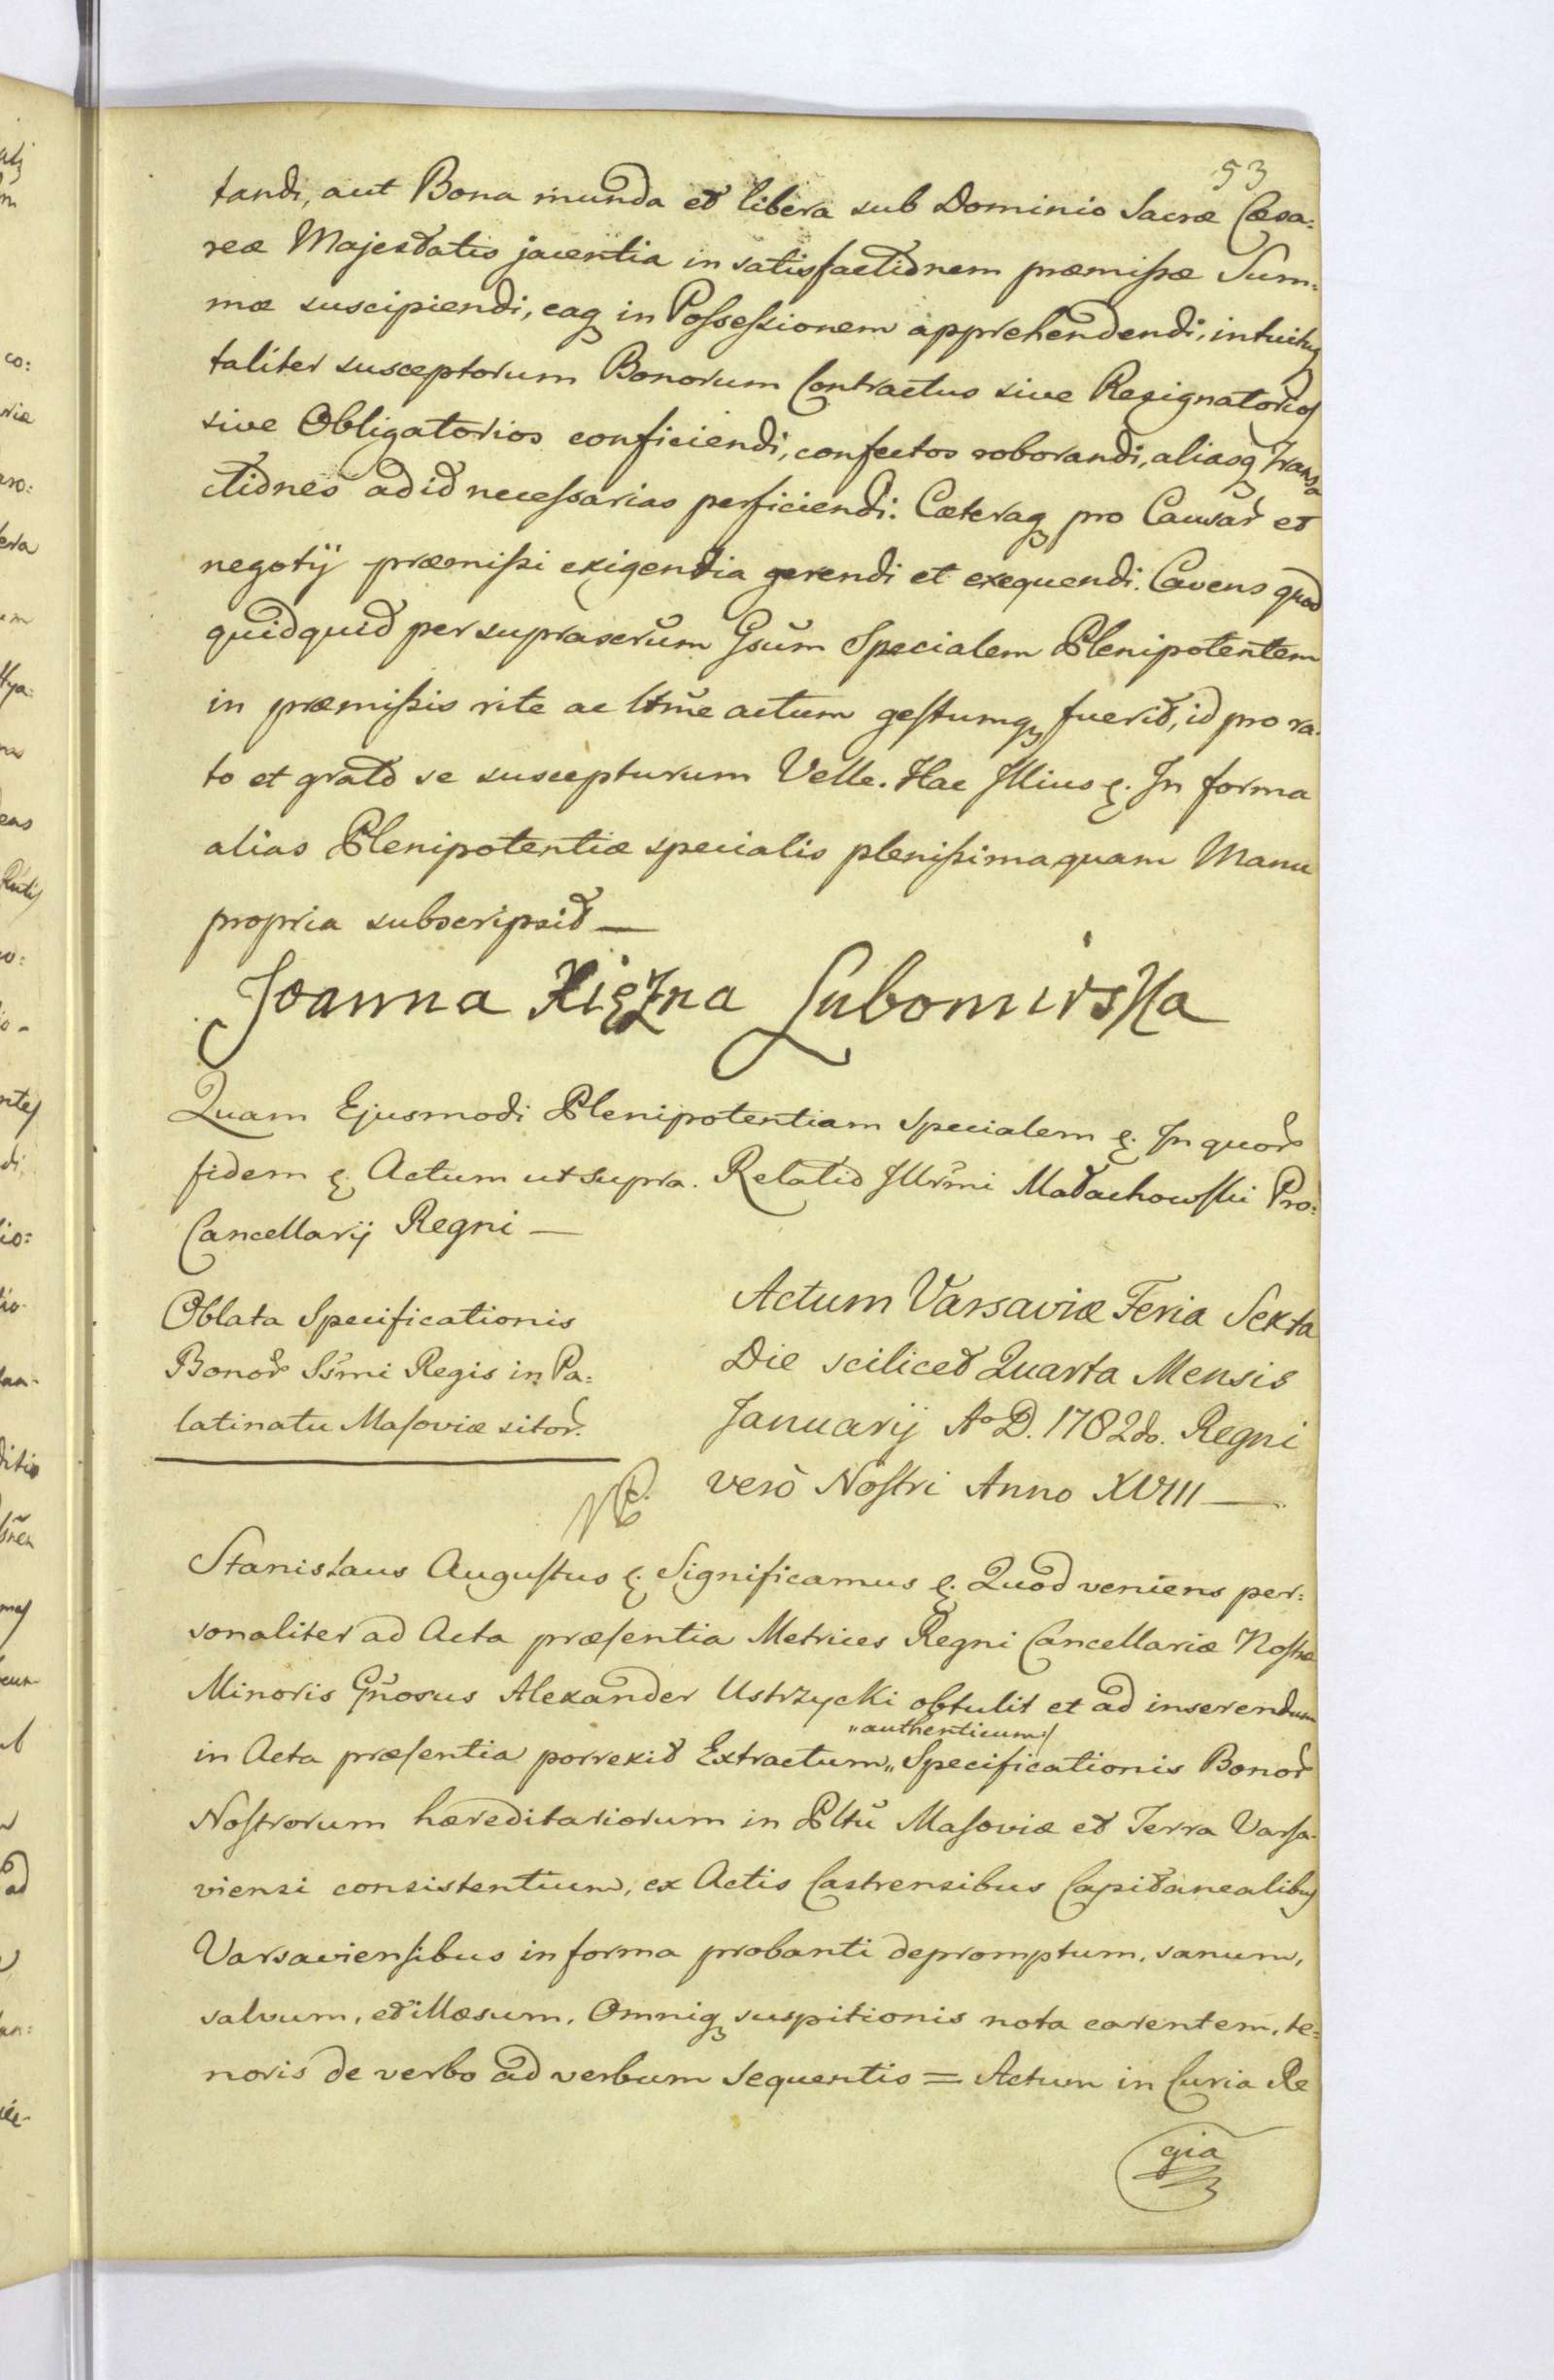 53
tandi, aut Bona munda et libera sub Dominio Sacræ Cæsa:
reæ Majestatis jacentia in satisfactionem præmissæ Sum:
mæ suscipiendi, eaq in Possessionem apprehendendi, intuituq
taliter susceptorum Bonorum Contractus sive Resignatorios
sive Obligatorios conficiendi, confectos roborandi, aliasq Transa
ctiones ad id necessarias perficiendi. Cæteraq pro Causar et
negotij præmissi exigentia gerendi et exequendi. Cavens quod
quidquid per suprascrũm Gsũm Specialem Plenipotentem
in præmissis rite ac ltme actum gestumq fuerit, id pro ra:
to et grato se suscepturum Velle. Hac Illius &. In forma
alias Plenipotentiæ specialis plenissima quam Manu
propria subscripsit —
Joanna Xiężna Lubomirska
Quam Ejusmodi Plenipotentiam Specialem &. In quor
fidem & Actum ut supra. Relatio Illrmi Małachowski Pro:
Cancellarij Regni —
Oblata Specificationis
Bonor Ssmi Regis in Pa:
latinatu Masoviæ sitor.
Actum Varsaviæ Feria Sexta
Die scilicet Quarta Mensis
Januarij Aº D. 1782do. Regni
verò Nostri Anno XVIII —
Stanislaus Augustus &. Significamus &. Quod veniens per:
sonaliter ad Acta præsentia Metrices Regni Cancellariæ Nostræ
Minoris Gñosus Alexander Ustrzycki obtulit et ad inserendum
„authenticum/
in Acta præsentia porrexit Extractum„ Specificationis Bonor
Nostrorum hæreditariorum in Pltũ Masoviæ et Terra Varsa:
viensi consistentium, ex Actis Castrensibus Capitanealibus
Varsaviensibus in forma probanti depromptum, sanum,
salvum, et illæsum, Omniq suspitionis nota carentem, te:
noris de verbo ad verbum sequentis = Actum in Curia Re
gia